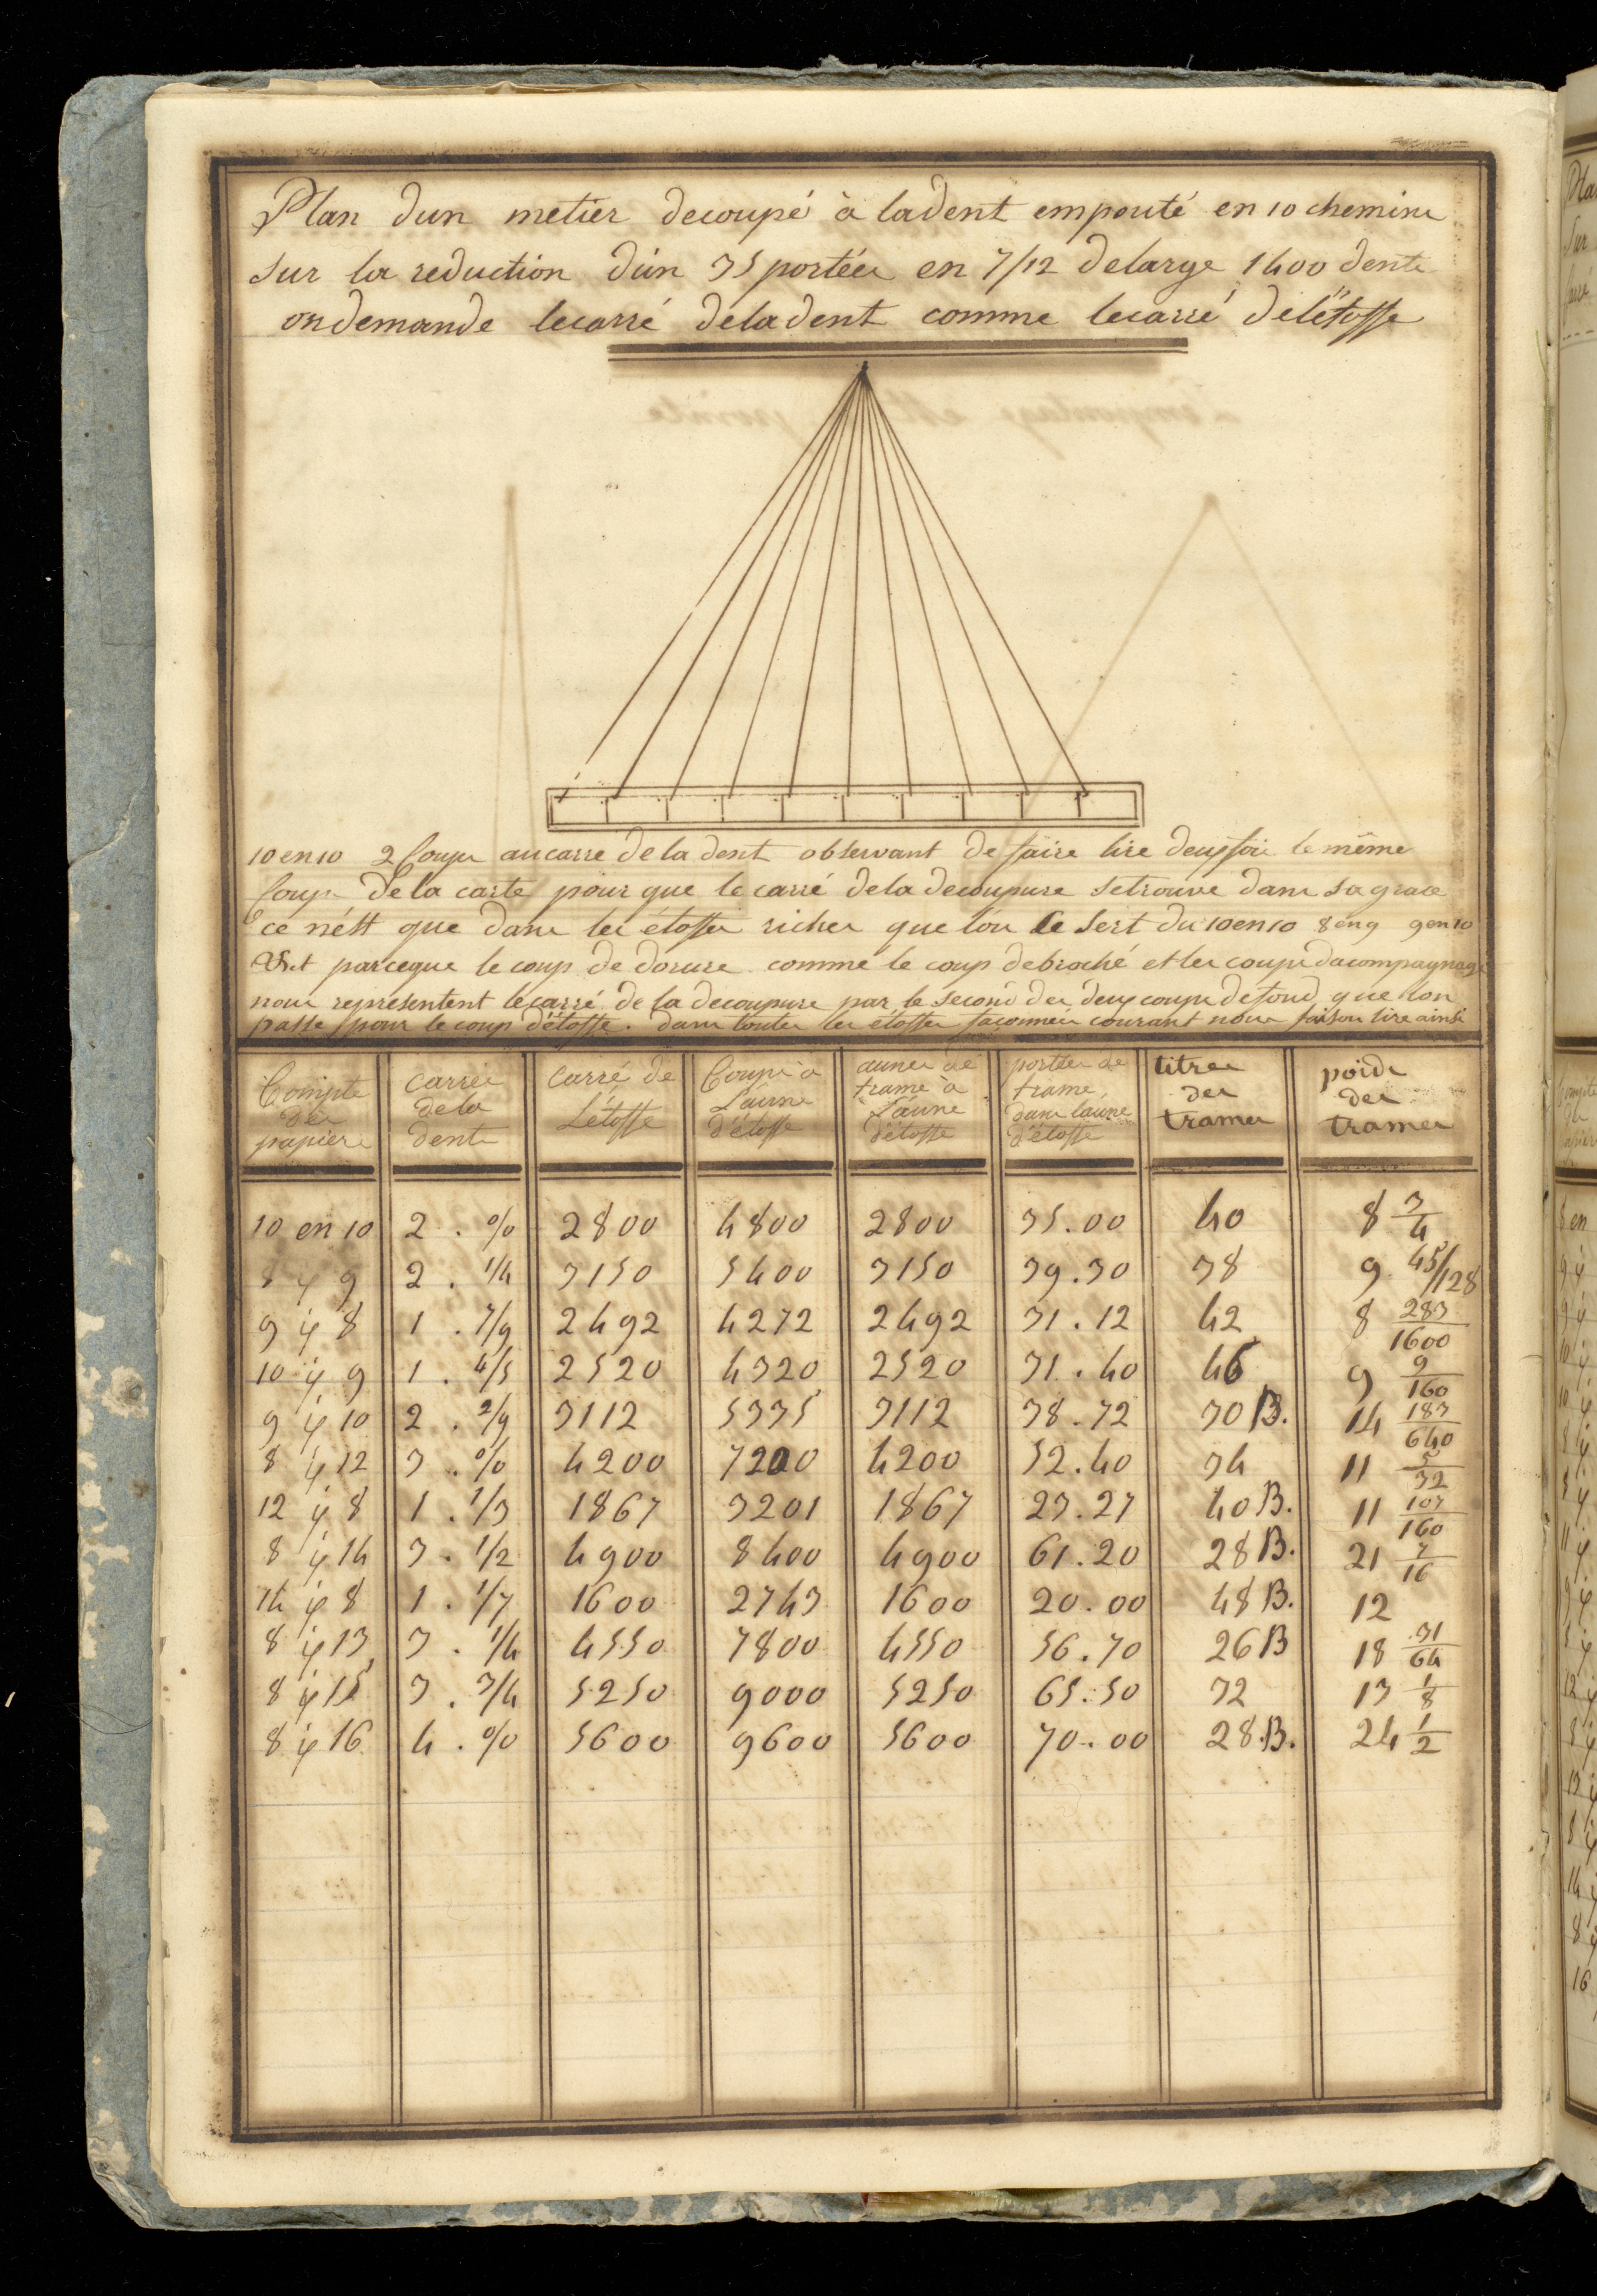 Plan dun metier decoupé à ladent empouté en 10 chemins
sur la reduction dùn 35 portées en 7/12 delarge 1400 dents
on demande lecarré deladent comme lecarré deletoffe
10 en 10 2 Coups aucarre de la dent observant de faire lire deux fois le même
Coup de la carte pour que le carré dela decoupure setrouve dans sa grace
ce n'est que dans les étoffes riches que l'on se sert du 10 en 10 8 en 9 9 en 10
parceque le coup de dorure comme le coup debroché et les coups dacompagnage
nous représentent lecarré de la decoupure par le second des deux coups defond que lon
passe pour le coup d'étoffe. dans toutes les étoffes façonnées courant nous faison lire ainsi
Compte des papiers | carrés dela dents | carré de L'étoffe | Coups à L'aune d'étoffe | aunes de trame à L'aune d'étoffe | portées de trame dans laune d'étoffe | titres des trames | poids des trames
10 en 10 | 2 . % | 2800 | 4800 | 2800 | 35.00 | 40 | 8 3/4
8 y 9 | 2 . 1/4 | 3150 | 5400 | 3150 | 39.30 | 38 | 9 45/128
9 y 8 | 1 . 7/9 | 2492 | 4272 | 2492 | 31.12 | 42 | 8 283/1600
10 y 9 | 1 . 4/5 | 2520 | 4320 | 2520 | 31.40 | 46 | 9 9/160
9 y 10 | 2 . 2/9 | 3112 | 5335 | 3112 | 38.72 | 30 B. | 14 183/640
8 y 12 | 3 . % | 4200 | 7200 | 4200 | 52.40 | 34 | 11 5/32
12 y 8 | 1 . 1/3 | 1867 | 3201 | 1867 | 23.27 | 40 B. | 11 107/160
8 y 14 | 3 . 1/2 | 4900 | 8400 | 4900 | 61.20 | 28 B. | 21 7/16
14 y 8 | 1 . 1/7 | 1600 | 2743 | 1600 | 20.00 | 48 B. | 12
8 y 13 | 3 . 1/4 | 4550 | 7800 | 4550 | 56.70 | 26 B | 18 31/64
8 y 15 | 3 . 3/4 | 5250 | 9000 | 5250 | 65.50 | 32 | 13 1/8
8 y 16 | 4 . % | 5600 | 9600 | 5600 | 70.00 | 28.B. | 24 1/2